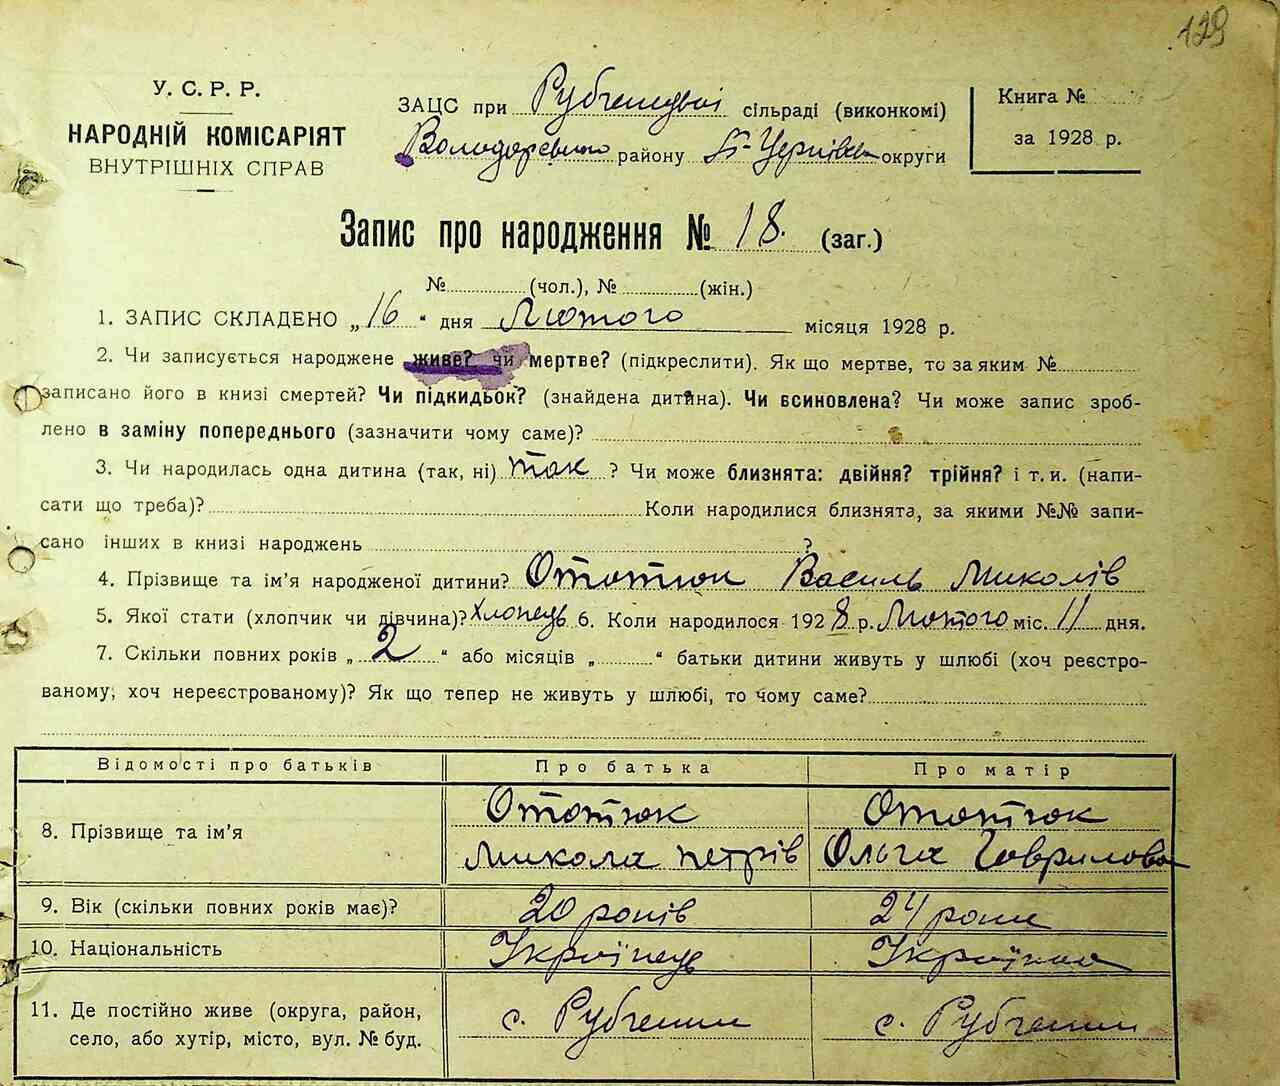 129
У. С. Р. Р.
НАРОДНІЙ КОМІСАРІЯТ
ВНУТРІШНІХ СПРАВ
ЗАЦС при Рубченській сільраді (виконкомі)
Володарського району Б-Церківської округи
Книга №
за 1928 р.
Запис про народження № 18. (заг.)
№ (чол.), № (жін.)
1. ЗАПИС СКЛАДЕНО „16" дня Лютого місяця 1928 р.
2. Чи записується народжене живе? чи мертве? (підкреслити). Як що мертве, то за яким №
записано його в книзі смертей? Чи підкидьок? (знайдена дитина). Чи всиновлена? Чи може запис зроб-
лено в заміну попереднього (зазначити чому саме)?
3. Чи народилась одна дитина (так, ні) так ? Чи може близнята: двійня? трійня? і т. и. (напи-
сати що треба)? Коли народилися близнята, за якими №№ запи-
сано інших в книзі народжень ?
4. Прізвище та ім'я народженої дитини? Ототюк Василь Миколів
5. Якої стати (хлопчик чи дівчина)? Хлопець 6. Коли народилося 1928 р. Лютого міс. 11 дня.
7. Скільки повних років „2" або місяців „ " батьки дитини живуть у шлюбі (хоч реєстро-
ваному, хоч нереєстрованому)? Як що тепер не живуть у шлюбі, то чому саме?
Відомості про батьків Про батька Про матір
8. Прізвище та ім'я
Ототюк
Микола Петрів
Ототюк
Ольга Гаврилова
9. Вік (скільки повних років має)? 20 років 24 роки
10. Національність Українець Українка
11. Де постійно живе (округа, район,
село, або хутір, місто, вул. № буд.
с. Рубченки
с. Рубченки